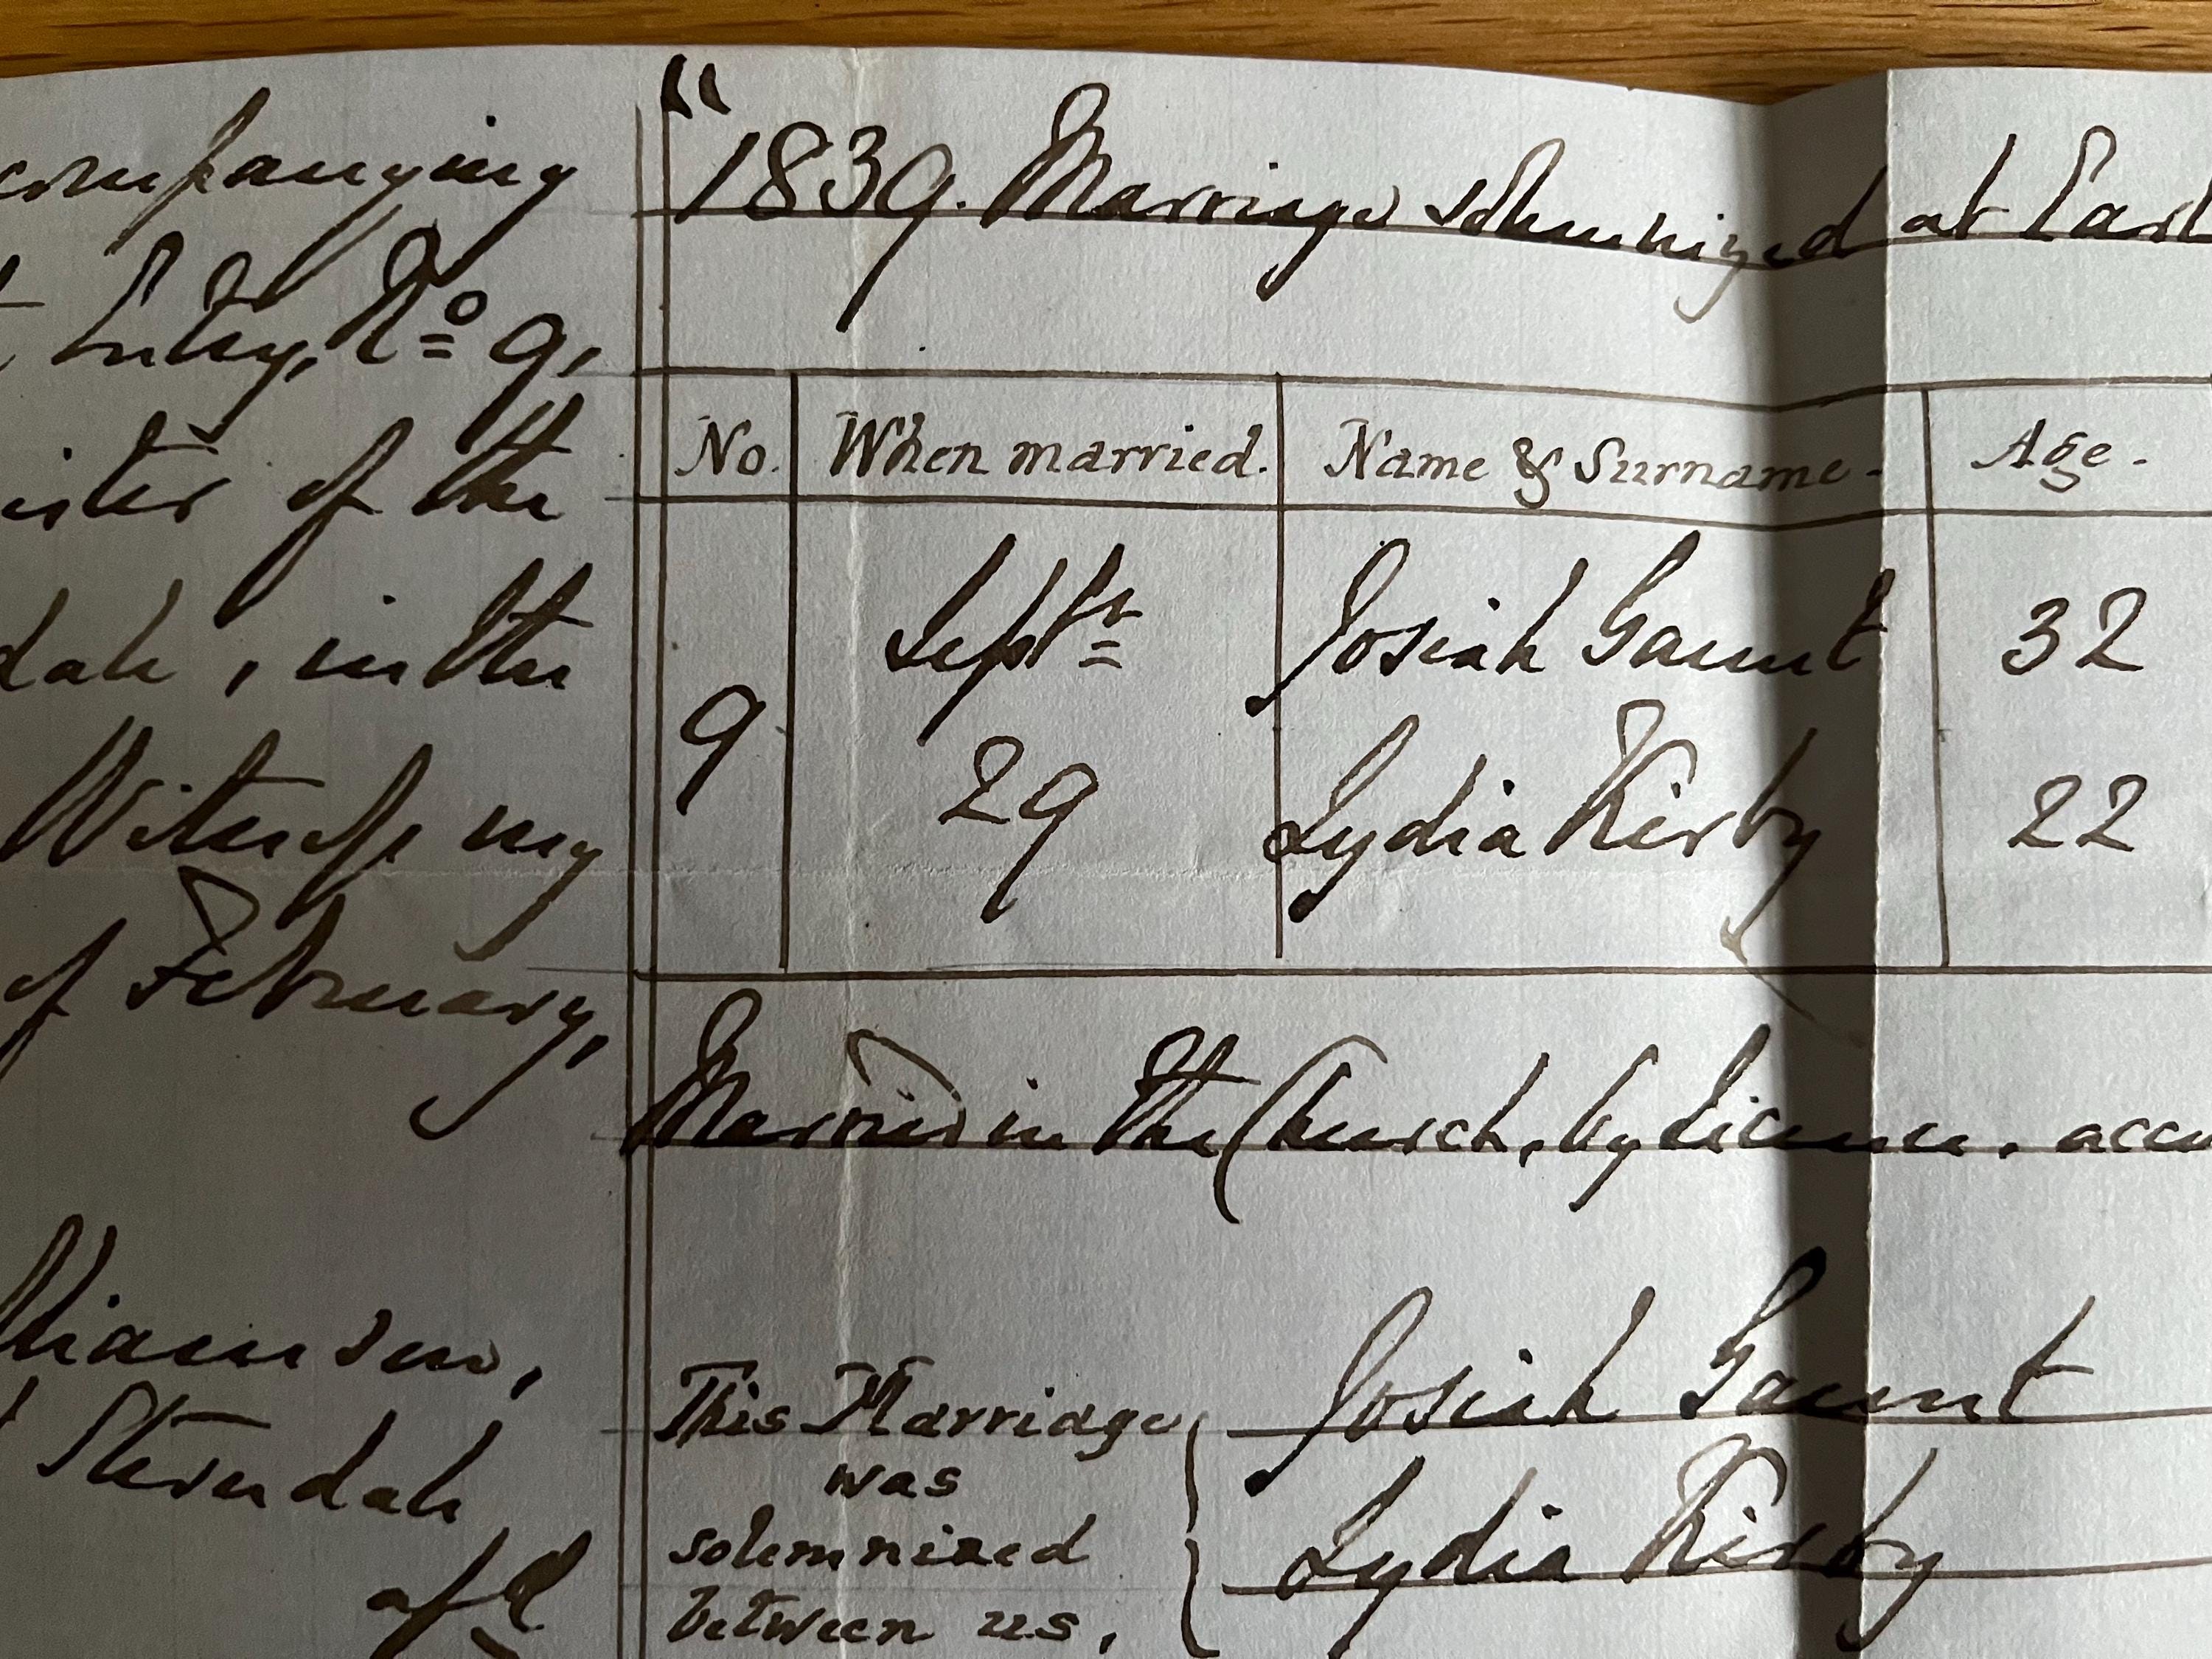 companying
Entry, No 9,
ister of the
dale, in the
Witness my
of February,
liamson,
Sterndale
"1839. Marriage solemnized at Earl
No. When married. Name & Surname. Age.
9 Septr Josiah Gaunt 32
29 Lydia Kirby 22
Married in the Church, by Licence, acco
This Marriage Josiah Gaunt
was
solemnized Lydia Kirby
between us,